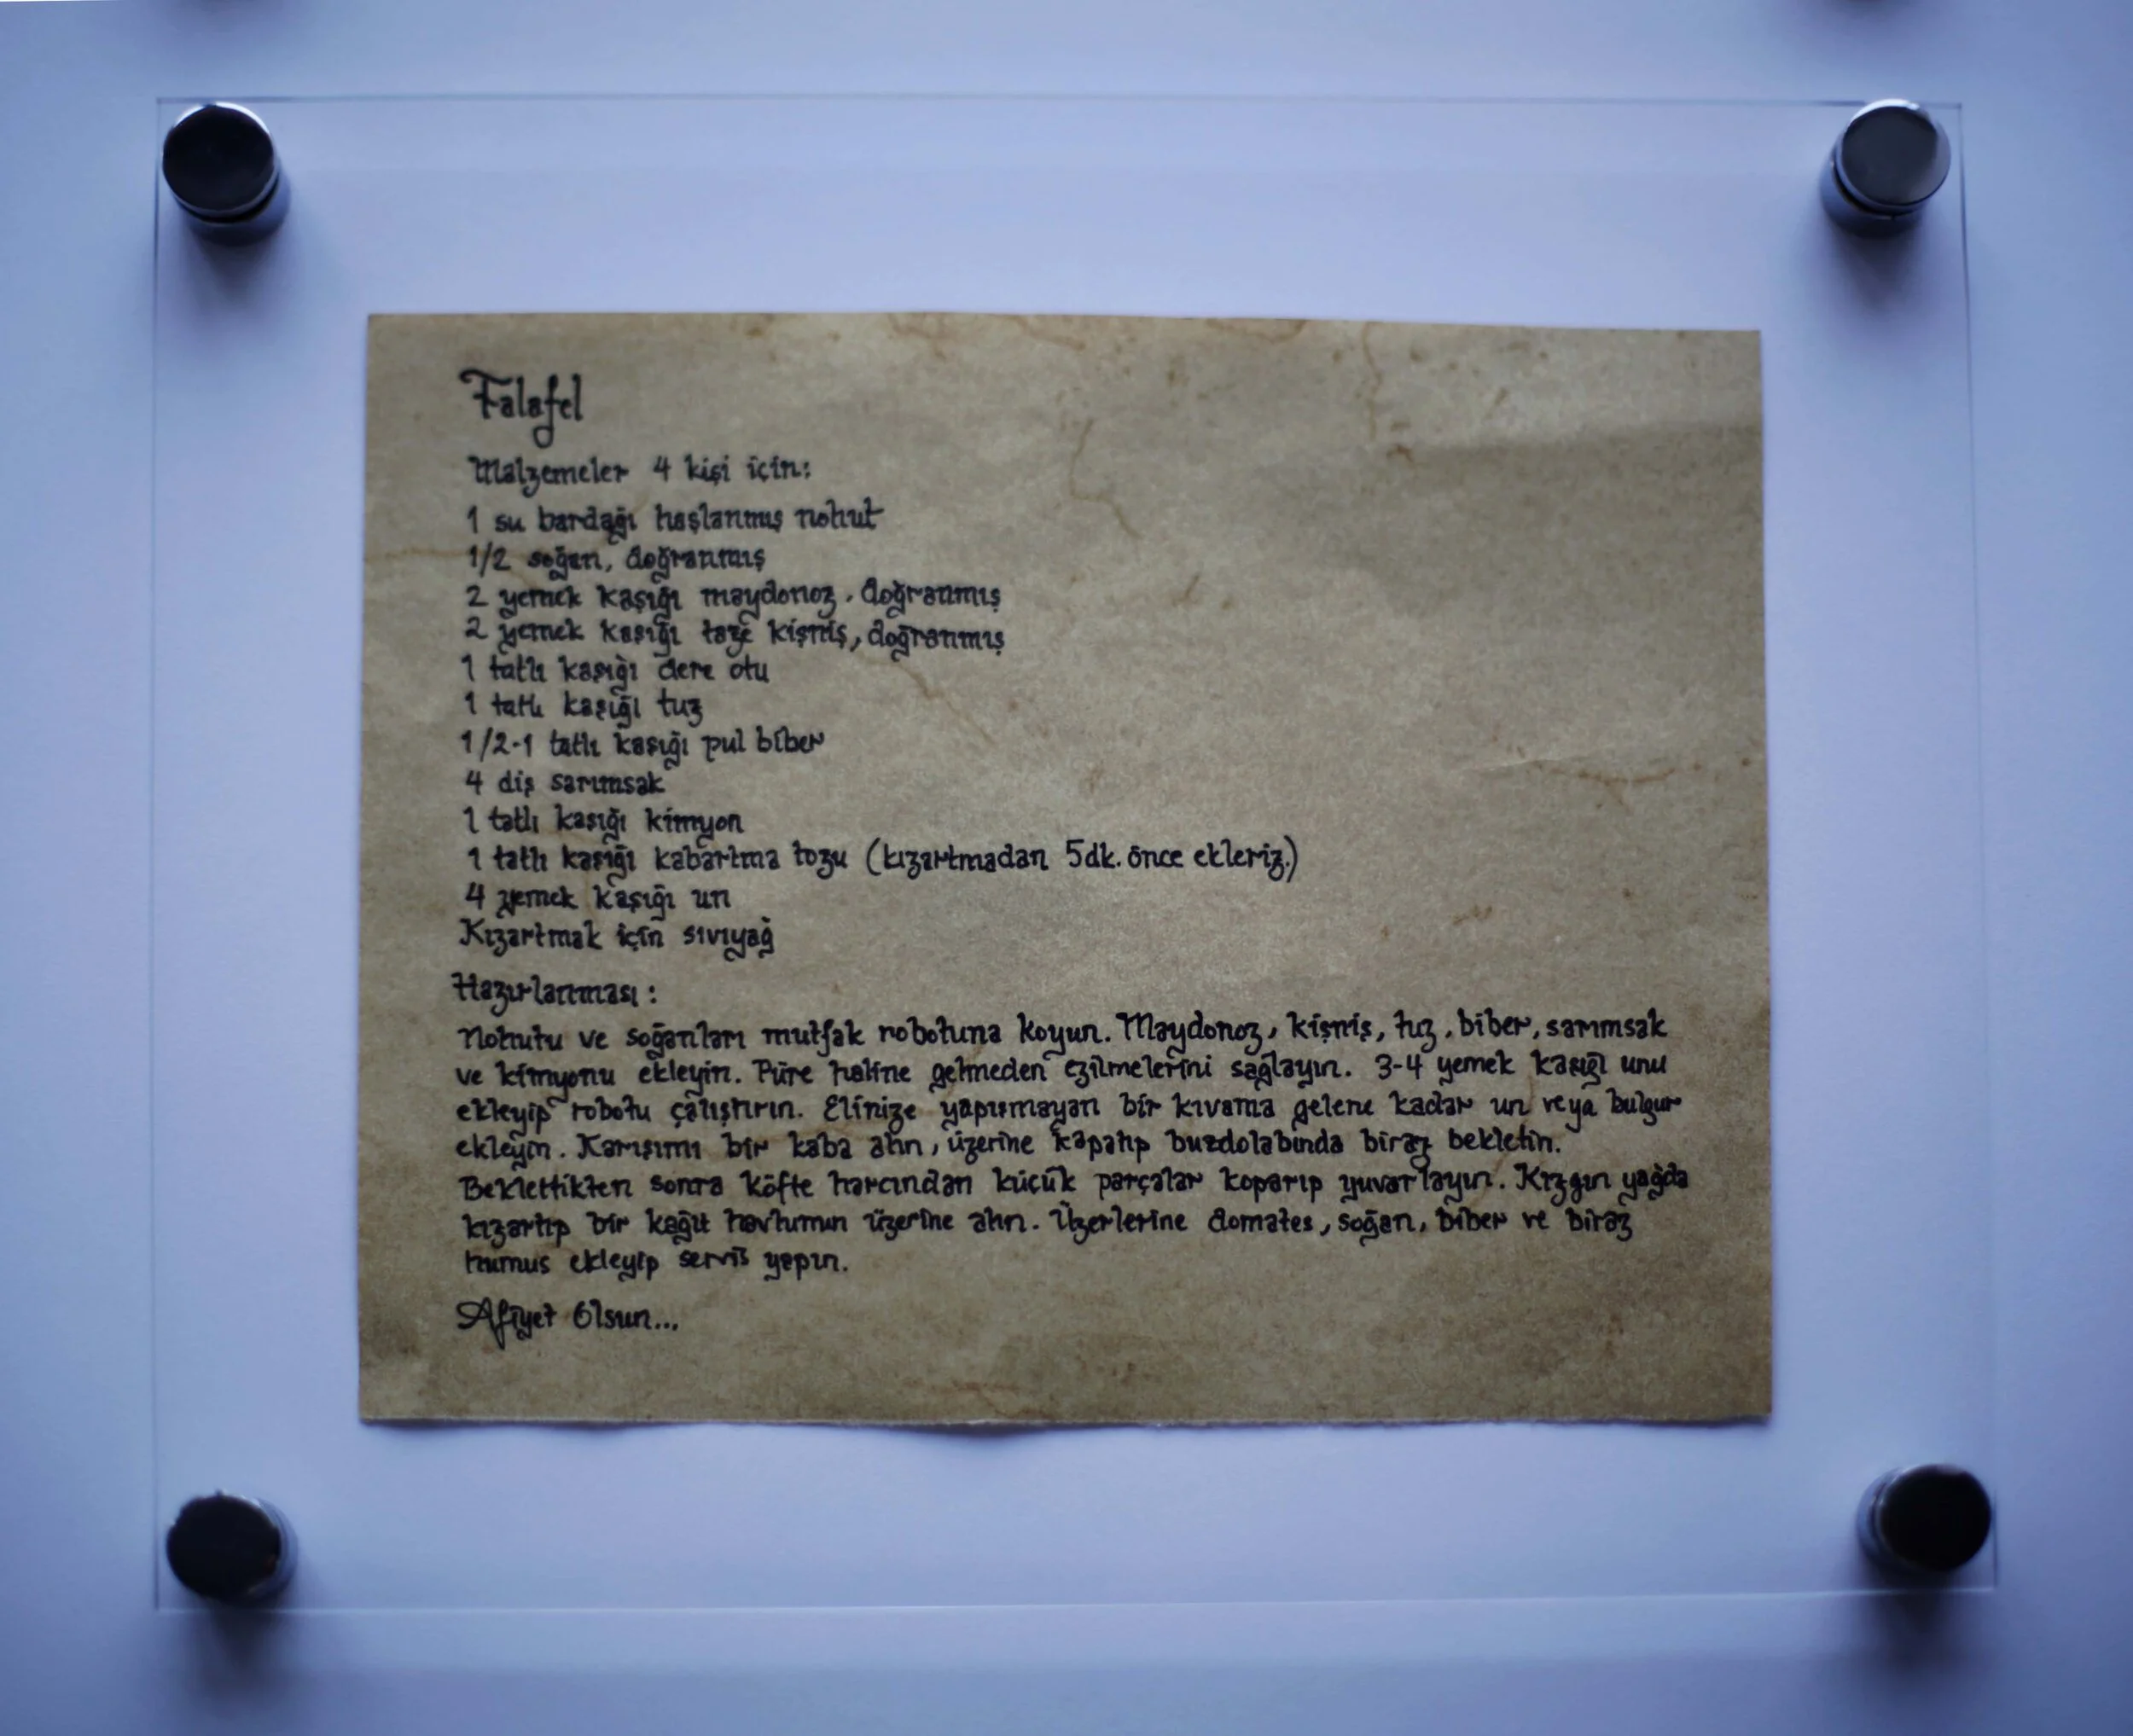 Falafel
Malzemeler 4 kişi için:
1 su bardağı haşlanmış nohut
1/2 soğan, doğranmış
2 yemek kaşığı maydonoz, doğranmış
2 yemek kaşığı taze kişniş, doğranmış
1 tatlı kaşığı dere otu
1 tatlı kaşığı tuz
1/2-1 tatlı kaşığı pul biber
4 diş sarımsak
1 tatlı kaşığı kimyon
1 tatlı kaşığı kabartma tozu (kızartmadan 5dk. önce ekleriz.)
4 yemek kaşığı un
Kızartmak için sıvıyağ
Hazırlanması:
Nohutu ve soğanları mutfak robotuna koyun. Maydonoz, kişniş, tuz, biber, sarımsak
ve kimyonu ekleyin. Püre haline gelmeden ezilmelerini sağlayın. 3-4 yemek kaşığı unu
ekleyip robotu çalıştırın. Elinize yapışmayan bir kıvama gelene kadar un veya bulgur
ekleyin. Karışımı bir kaba alın, üzerine kapatıp buzdolabında biraz bekletin.
Beklettikten sonra köfte harcından küçük parçalar koparıp yuvarlayın. Kızgın yağda
kızartıp bir kağıt havlunun üzerine alın. Üzerlerine domates, soğan, biber ve biraz
humus ekleyip servis yapın.
Afiyet Olsun...